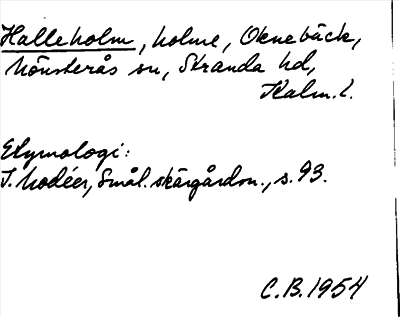 Halleholm, holme, Oknebäck,
Mönsterås sn, Stranda hd,
Kalm. l.
Etymologi:
I. Modéer, Smål. skärgårdsn., s. 93.
C.B. 1954